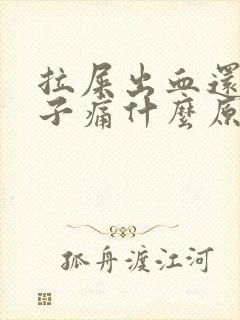 拉屎出血還
子痛什麼原
孤舟渡江河